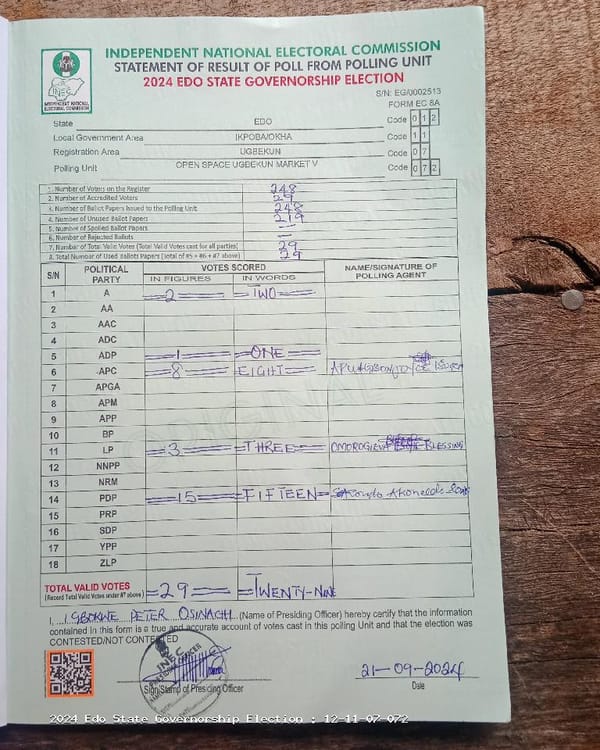 INDEPENDENT NATIONAL ELECTORAL COMMISSION
STATEMENT OF RESULT OF POLL FROM POLLING UNIT
2024 EDO STATE GOVERNORSHIP ELECTION
INEC
INDEPENDENT NATIONAL ELECTORAL COMMISSION
S/N: EG/0002513
FORM EC 8A
State EDO Code 0 1 2
Local Government Area IKPOBA/OKHA Code 1 1
Registration Area UGBEKUN Code 0 7
Polling Unit OPEN SPACE UGBEKUN MARKET V Code 0 7 2
1. Number of Voters on the Register 248
2. Number of Accredited Voters 29
3. Number of Ballot Papers Issued to the Polling Unit 248
4. Number of Unused Ballot Papers 219
5. Number of Spoiled Ballot Papers —
6. Number of Rejected Ballots —
7. Number of Total Valid Votes (Total Valid Votes cast for all parties) 29
8. Total Number of Used Ballots Papers (Total of #5 + #6 + #7 above) 29
S/N POLITICAL PARTY VOTES SCORED NAME/SIGNATURE OF POLLING AGENT
IN FIGURES IN WORDS
1 A 2 TWO
2 AA
3 AAC
4 ADC
5 ADP 1 ONE
6 APC 8 EIGHT
7 APGA
8 APM
9 APP
10 BP
11 LP 3 THREE OMOROGIEVA BLESSING
12 NNPP
13 NRM
14 PDP 15 FIFTEEN
15 PRP
16 SDP
17 YPP
18 ZLP
TOTAL VALID VOTES =29= =TWENTY-NINE
(Record Total Valid Votes under #7 above)
I, IGBOKWE PETER OSINACHI (Name of Presiding Officer) hereby certify that the information
contained in this form is a true and accurate account of votes cast in this polling Unit and that the election was
CONTESTED/NOT CONTESTED
INEC
21-09-2024
Sign/Stamp of Presiding Officer Date
2024 Edo State Governorship Election : 12-11-07-072